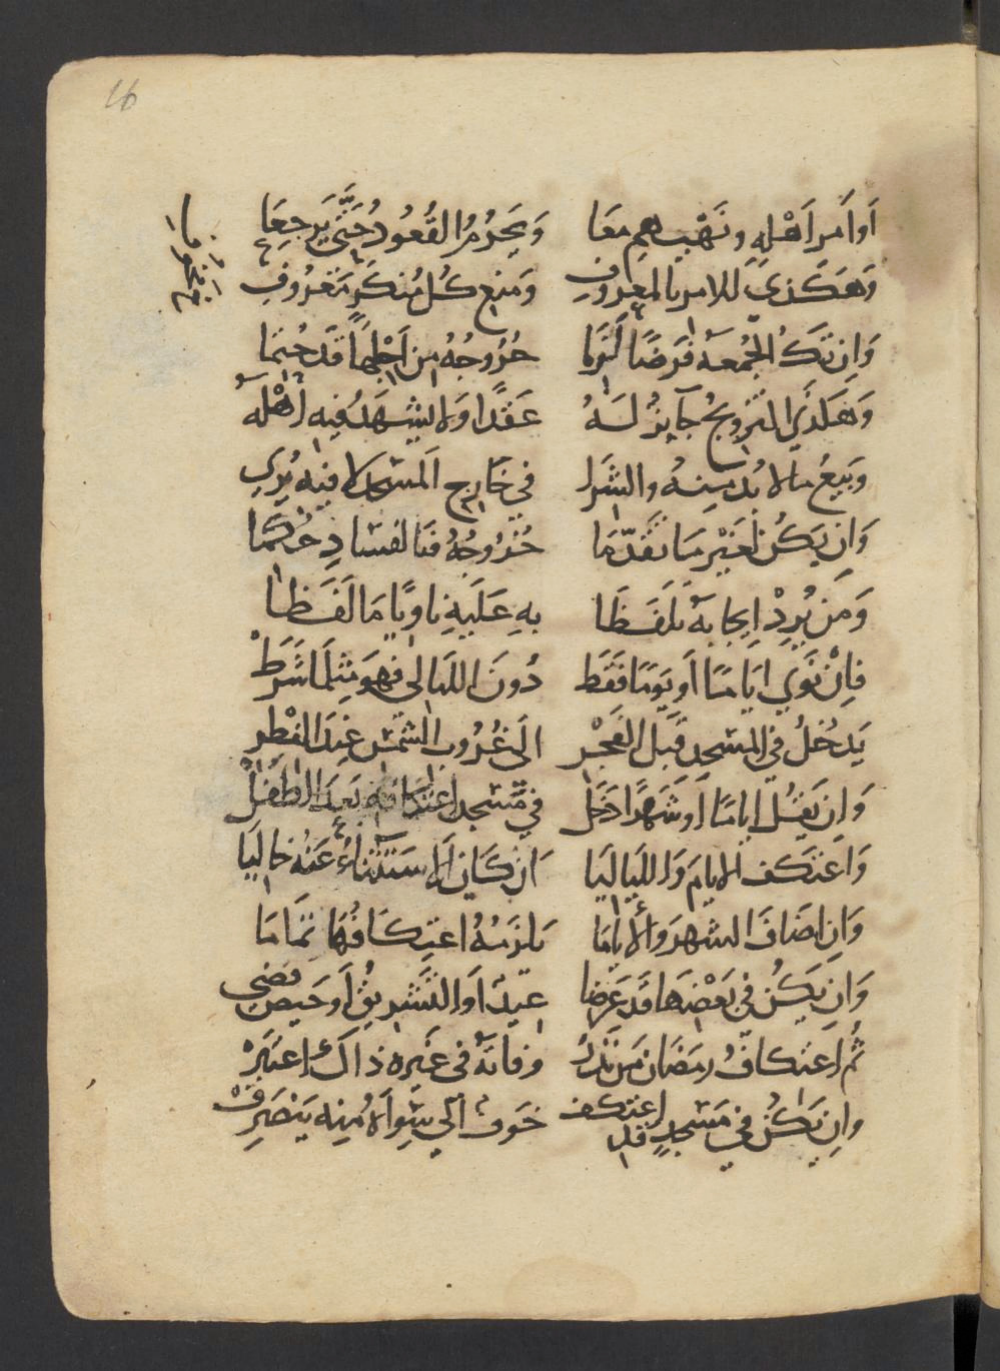 16
أَوْ أَمْرِ أَهْلِهِ وَنَهْيِهِمْ مَعَا وَيَحْرُمُ القُعُودُ حَتَّى يَرْجِعَا
وَهَكَذَى للامر بالمعروفِ وَمنع كُل مُنكَرٍ مَعْرُوفِ
وَانِ تَكُ الْجُمعَةُ فَرضًا لَزِمَا خُرُوجُهُ مِن اَجْلِهَا قَد حُتِمَا
وَهَكَذَي التزويجُ جَايِزٌ لَهُ عَقدًا وَلا يشهَدُ فِيهِ أَهْلَهُ
وَبَيعُ مالا بُدَ مِنهُ والشِرَا في خَارِج المَسجِد لا فِيهِ يُرِي
وَانِ يَكُن لغَيْر مَا تقَدّمَا خُرُوجُهُ فَبالفسَادِ حُكمَا
وَمَن يُرِدْ اِيجَابَهُ تلَفَظَا بِهِ عَلَيهِ ناوِيًا مَا لَفَظَا
فاِنْ نَوَي ايَامًا اَو يَومًا فَقَط دُونَ اللَيالى فهوَ مِثلَما شَرَطْ
يَدخُلُ في المسجد قَبلَ الفَجْرِ الَى غُرُوب الشَمْس عِندَ الفِطْرِ
وَانِ يَقُل ايامًا اَو شَهْرًا دَخَل في مَسجد اعتكافه بَعدَ الطَفَلْ
وَاعتكف الايامَ وَاللَيَالِيَا ان كَانِ الاسْتَثناءُ عَنهُ خالِيَا
وَانِ اضَافَ الشهرَ والأَيامَا يَلزَمُهُ اعتِكَافُهَا تمَامَا
وَانِ يَكُن في بَعْضِهَا قَد عَرَضا عِيدٌ اَو التَشْرِيقُ اَو حَيض قضى
ثُم اعتكافُ رمَضَان مَن نَذَرْ وَفاتَهُ في غَيرِه ذاكَ اعتبَرْ
وانِ يَكُن في مَسْجدٍ قد اعتكف خَوفٌ الَي سِواهُ مِنه يَنصَرِفْ